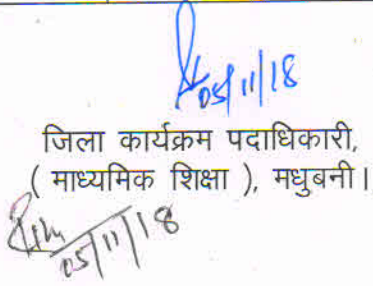 05/11/18
जिला कार्यक्रम पदाधिकारी,
( माध्यमिक शिक्षा ), मधुबनी।
05/11/18